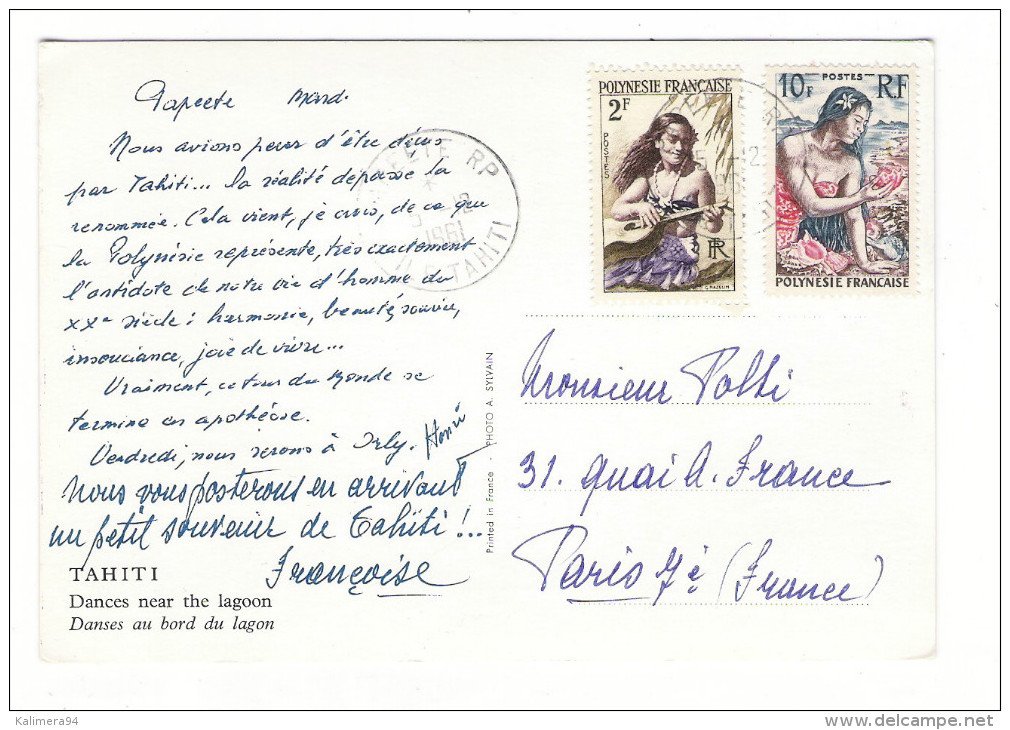 Papeete Mardi
Nous avions peur d'être déçus
par Tahiti... la réalité dépasse la
renommée. Cela vient, je crois, de ce que
la Polynésie représente, très exactement
l'antidote de notre vie d'homme du
XXe siècle : harmonie, beauté, sourire,
insouciance, joie de vivre...
Vraiment, ce tour du Monde se
termine en apothéose.
Vendredi, nous serons à Orly. Henri
Nous vous posterons en arrivant
un petit souvenir de Tahiti !...
Françoise
TAHITI
Dances near the lagoon
Danses au bord du lagon
Printed in France - PHOTO A. SYLVAIN
PAPEETE RP
12
1961
TAHITI
POLYNESIE FRANÇAISE
2F
POSTES
RF
10F
POSTES
RF
POLYNESIE FRANCAISE
12
Monsieur Polti
31. Quai A. France
Paris 7è (France)
Kalimera94
www.delcampe.net